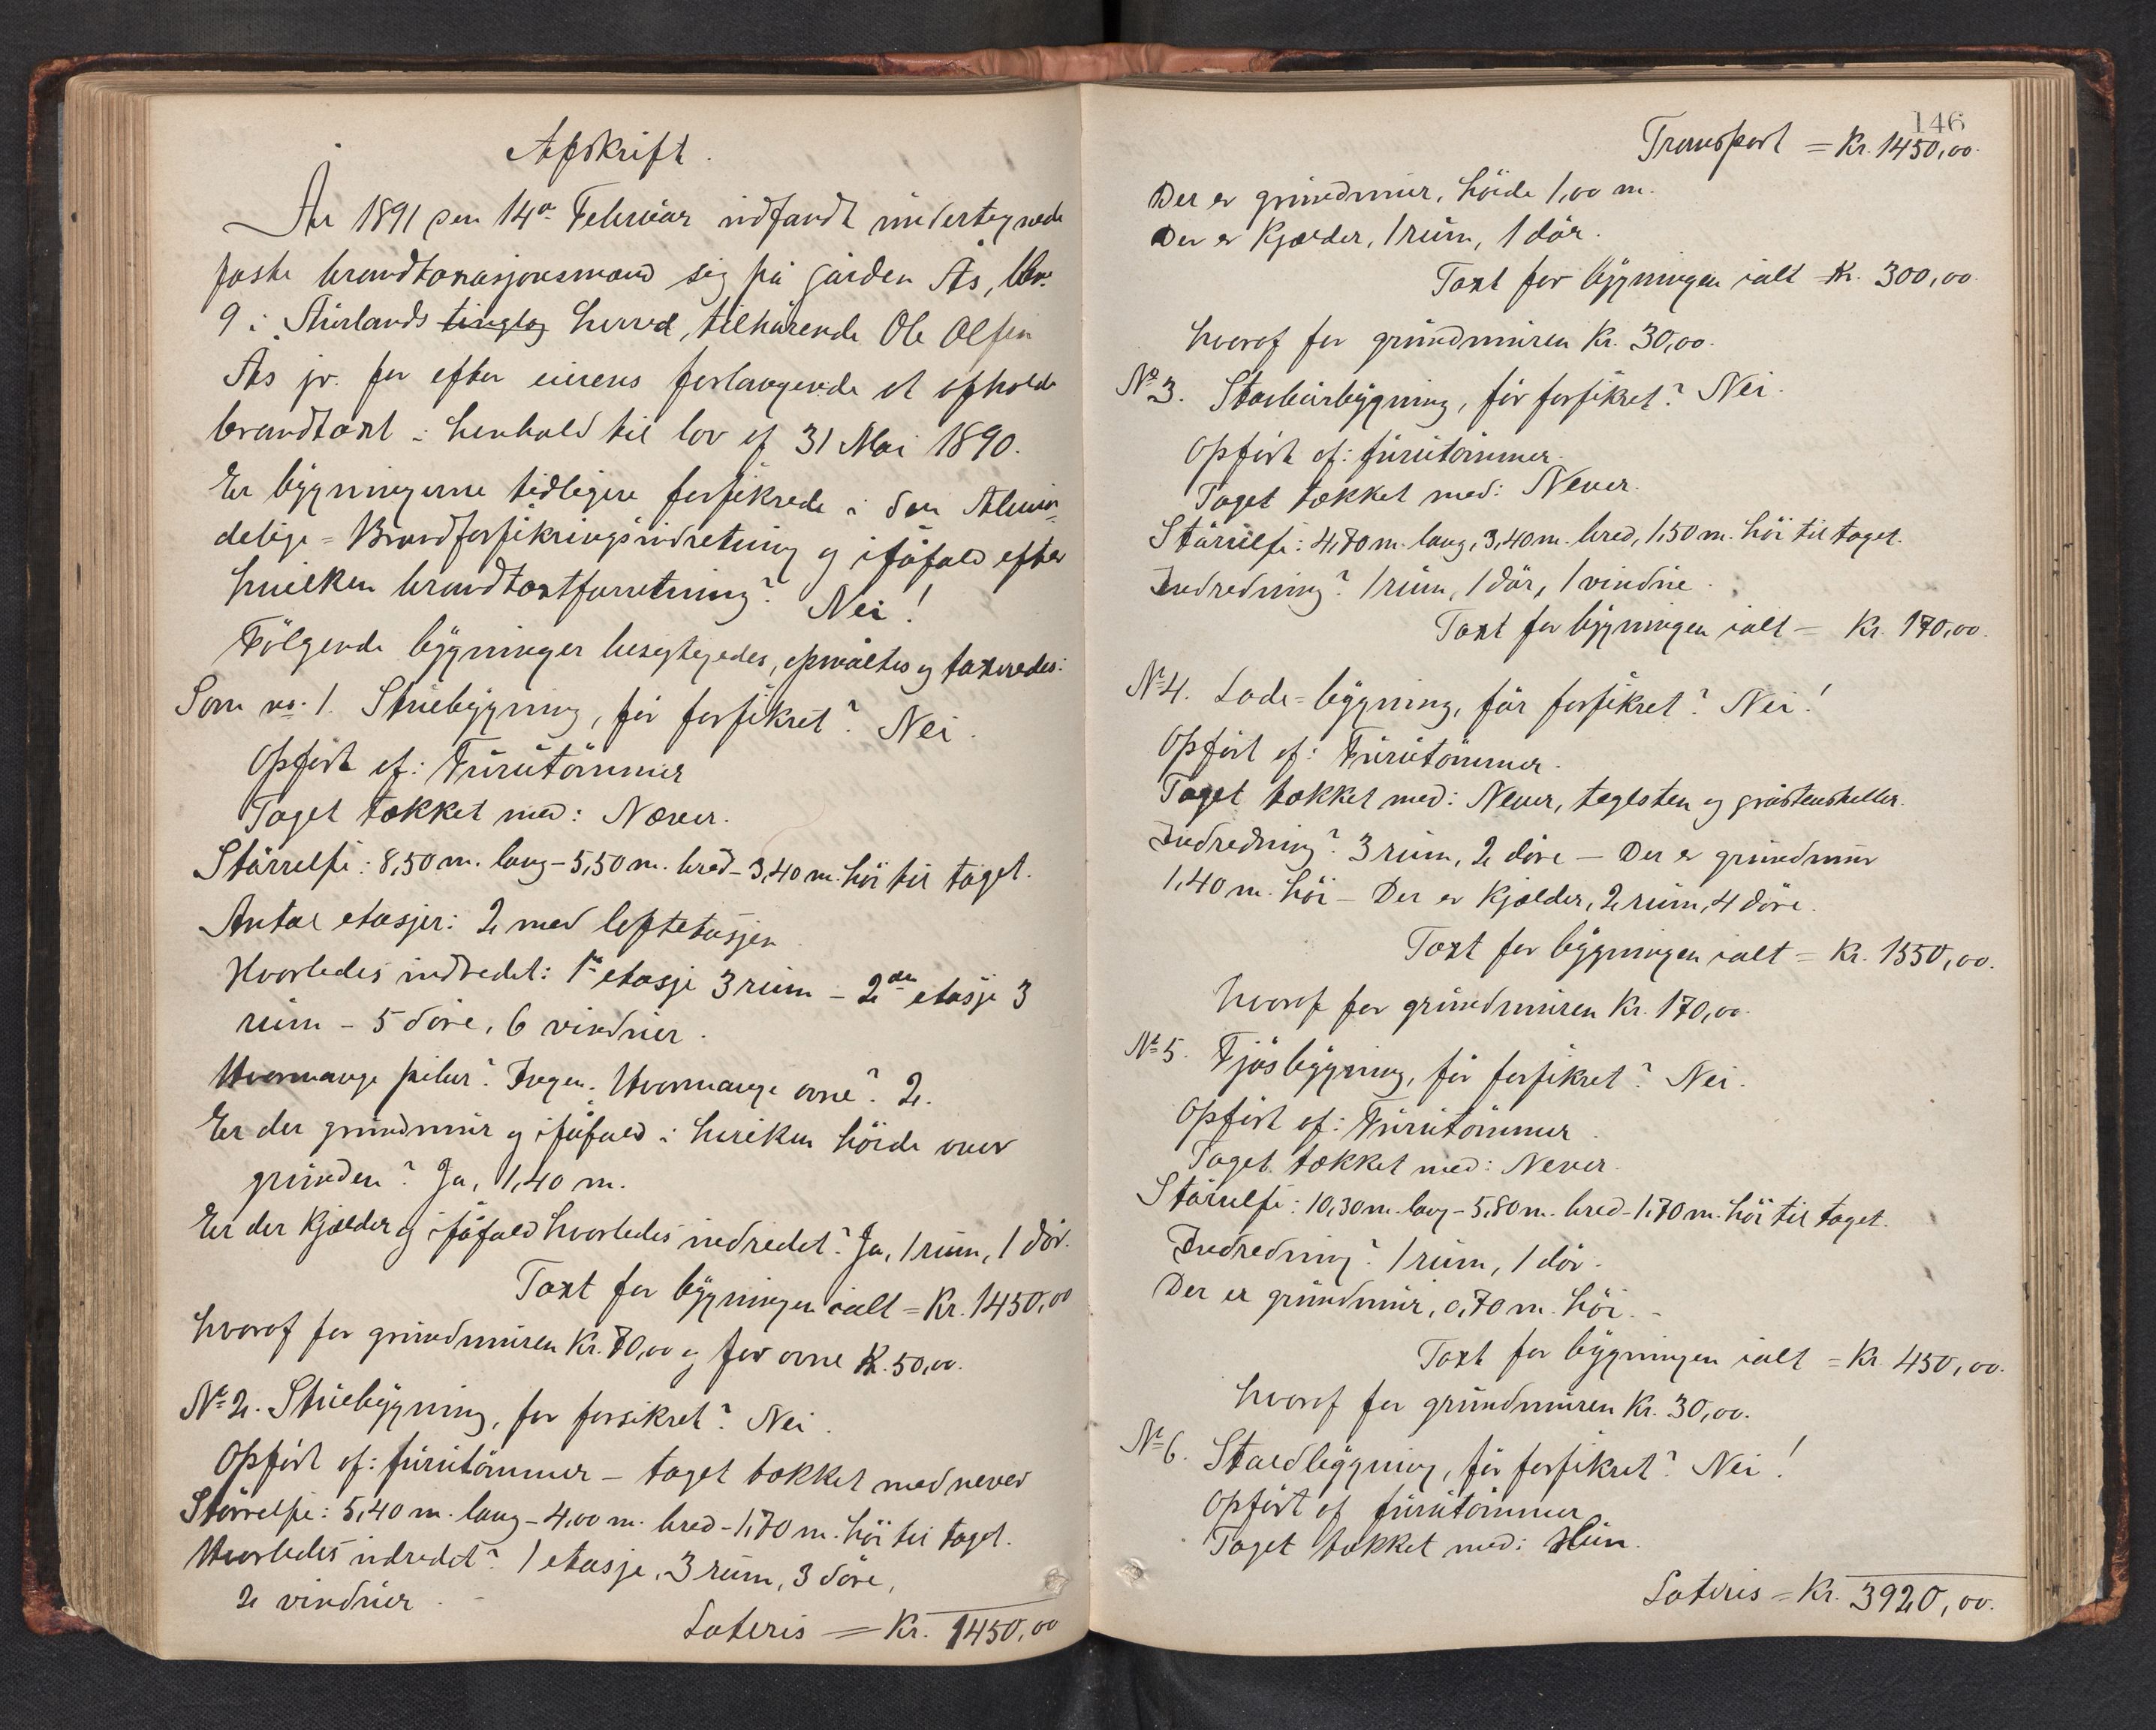 Afskrift.
År 1891 den 14de Februar indfandt undertegnede
faste brandtaxasjonsmænd sig på gården Ås, br.
9 i Aurlands tinglag herred, tilhörende Ole Olsen
Ås jr. for efter eierens forlangende at afholde
brandtaxt i henhold til lov af 31 Mai 1890.
Er bygningerne tidligere forsikrede i den Almin-
delige Brandforsikringsindretning og isåfald efter
hvilken brandtaxtforretning? Nei!
Fölgende bygninger besigtigedes, opmåltes og taxeredes:
Som no. 1. Stuebygning, för forsikret? Nei.
Opfört af: Furutömmer
Taget tækket med: Næver.
Störrelse: 8,50 m. lang – 5,50 m. bred – 3,40 m. höi til taget.
Antal etasjer: 2 med loftetasjen
Hvorledes indredet: 1ste etasje 3 rum – 2den etasje 3
rum – 5 döre, 6 vinduer.
Hvormange piber? Ingen. Hvormange ovne? 2.
Er der grundmur og isåfald i hvilken höide over
grunden? Ja, 1,40 m.
Er der Kjælder og isåfald hvorledes indredet? Ja, 1 rum, 1 dör.
Taxt for bygningen ialt = Kr. 1450,00
hvoraf for grundmuren Kr. 70,00 og for ovne Kr. 50,00.
No 2. Stuebygning, för forsikret? Nei.
Opfört af: furutömmer – taget tækket med never
Störrelse: 5,40 m. lang – 4,00 m. bred – 1,70 m. höi til taget.
Hvorledes indredet? 1 etasje, 3 rum, 3 döre,
2 vinduer.
Lateris = Kr. 1450,00
146
Transport = Kr. 1450,00.
Der er grundmur, höide 1,00 m.
Der er Kjælder, 1 rum, 1 dör.
Taxt for bygningen ialt Kr. 300,00
hvoraf for grundmuren Kr. 30,00.
No 3. Stabursbygning, för forsikret? Nei.
Opfört af: furutömmer.
Taget tækket med: Never.
Störrelse: 4,70 m. lang, 3,40 m. bred, 1,50 m. höi til taget.
Indredning? 1 rum, 1 dör, 1 vindue.
Taxt for bygningen ialt = Kr. 170,00.
No 4. Lade-bygning, för forsikret? Nei!
Opfört af: Furutömmer.
Taget tækket med: Never, teglsten og gråstensheller.
Indredning? 3 rum, 2 döre – Der er grundmur
1,40 m. höi – Der er Kjælder, 2 rum, 4 döre.
Taxt for bygningen ialt = Kr. 1550,00.
hvoraf for grundmuren Kr. 170,00.
No 5. Fjösbygning, för forsikret? Nei.
Opfört af: Furutömmer.
Taget tækket med: Never.
Störrelse: 10,30 m. lang – 5,80 m. bred – 1,70 m. höi til taget.
Indredning? 1 rum, 1 dör.
Der er grundmur, 0,70 m. höi.
Taxt for bygningen ialt = Kr. 450,00.
hvoraf for grundmuren Kr. 30,00.
No 6. Staldbygning, för forsikret? Nei!
Opfört af furutömmer
Taget tækket med: Hun.
Lateris = Kr. 3920,00.